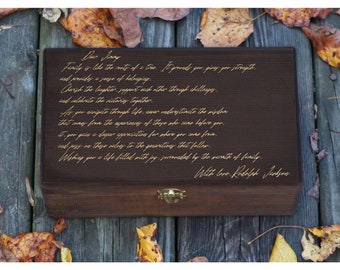 Dear Jimmy
Family is like the roots of a tree. It provides you, gives you strength,
and provides a sense of belonging.
Cherish the laughter, support each other through challenges,
and celebrate the victories together.
As you navigate through life, never underestimate the wisdom
that comes from the experiences of those who came before
it gives you a deeper appreciation for where you came from,
and pass on these values to the generations that follow.
Wishing you a life filled with joy, surrounded by the warmth of family.
With love, Rudolph Jackson